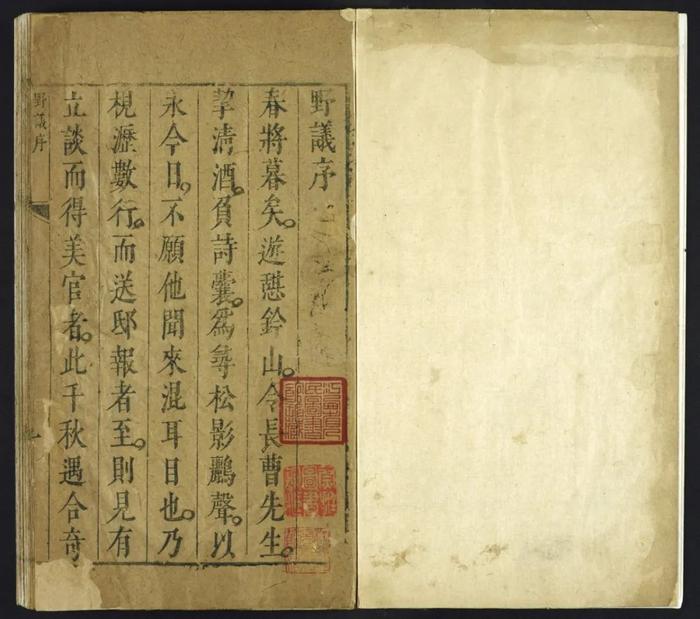 野議序
春將暮矣。遊憇鈐山。令長曹先生。
挈清酒。負詩囊。爲尋松影鸝聲。以
永今日。不願他聞來混耳目也。乃
梘瀝數行。而送邸報者至。則見有
立談而得美官者。此千秋遇合奇
野議序